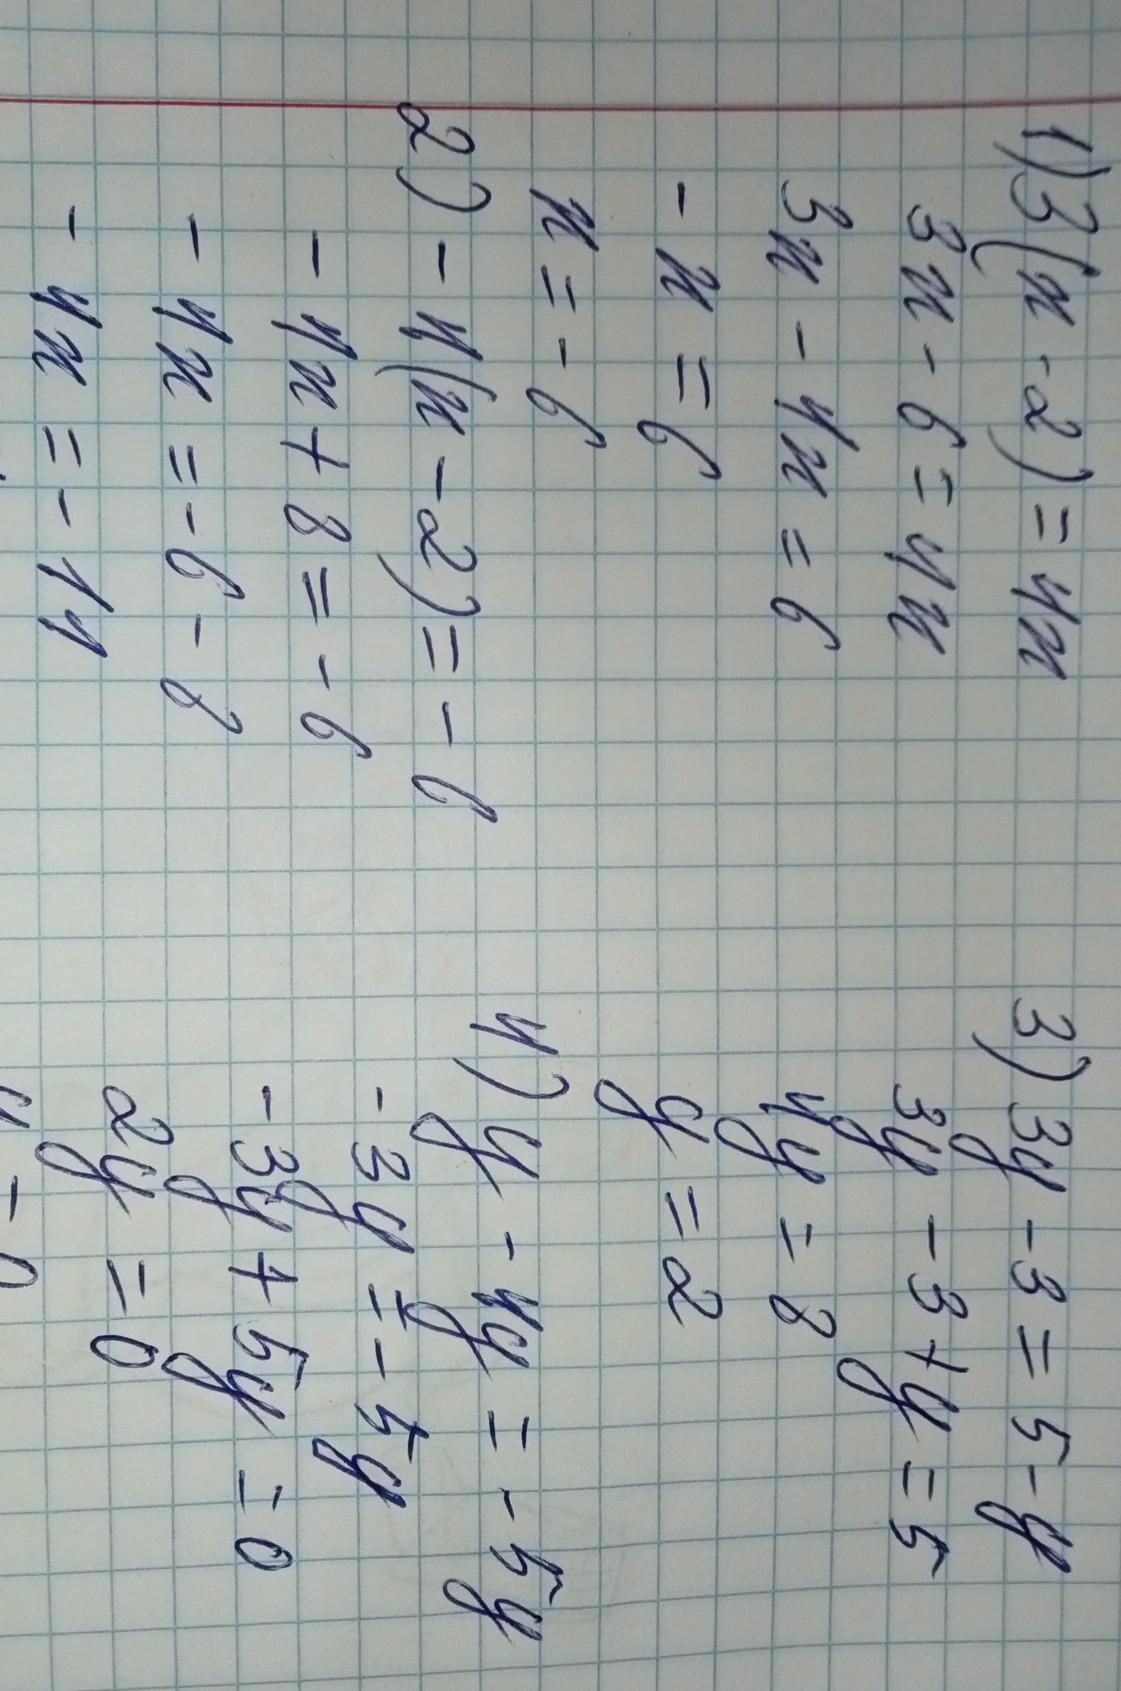 1) 3(x - 2) = 4x
3x - 6 = 4x
3x - 4x = 6
- x = 6
x = - 6
2) - 4(x - 2) = - 6
- 4x + 8 = - 6
- 4x = - 6 - 8
- 4x = - 14
3) 3y - 3 = 5 - y
3y - 3 + y = 5
4y = 8
y = 2
4) y - 4y = - 5y
- 3y = - 5y
- 3y + 5y = 0
2y = 0